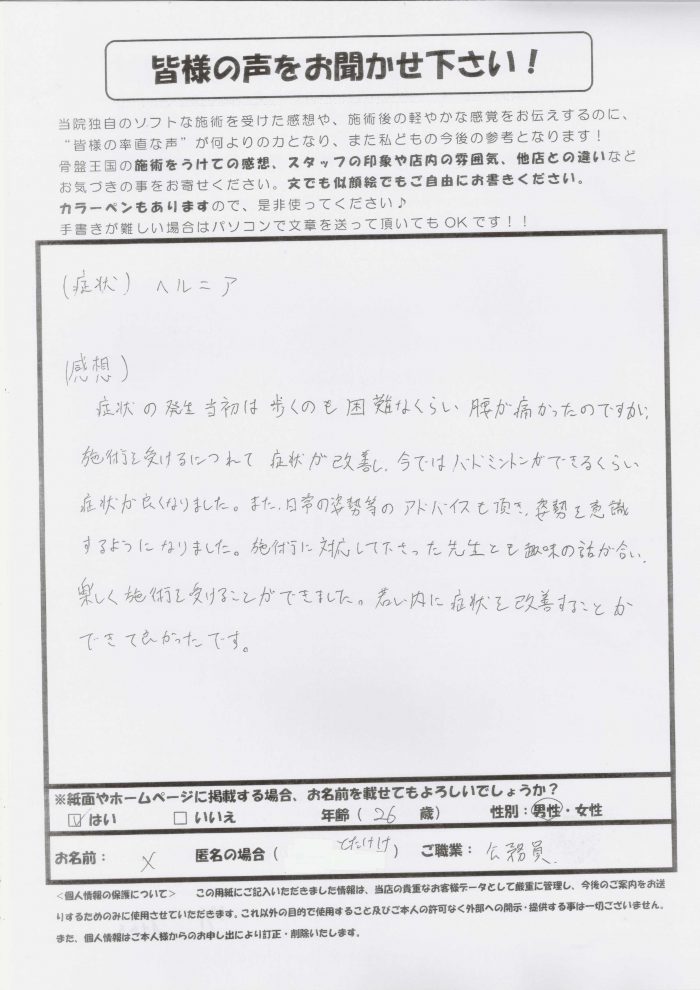 皆様の声をお聞かせ下さい！
当院独自のソフトな施術を受けた感想や、施術後の軽やかな感覚をお伝えするのに、
“皆様の率直な声”が何よりの力となり、また私どもの今後の参考となります！
骨盤王国の施術をうけての感想、スタッフの印象や店内の雰囲気、他店との違いなど
お気づきの事をお寄せください。文でも似顔絵でもご自由にお書きください。
カラーペンもありますので、是非使ってください♪
手書きが難しい場合はパソコンで文章を送って頂いてもOKです！！
(症状) ヘルニア
(感想)
症状の発生当初は歩くのも困難なくらい腰が痛かったのですが、
施術を受けるにつれて症状が改善し、今ではバドミントンができるくらい
症状が良くなりました。また、日常の姿勢等のアドバイスも頂き、姿勢を意識
するようになりました。施術に対応して下さった先生とも趣味の話が合い、
楽しく施術を受けることができました。若い内に症状を改善することが
できて良かったです。
※紙面やホームページに掲載する場合、お名前を載せてもよろしいでしょうか？
☑はい □いいえ 年齢（26歳） 性別：男性・女性
お名前： X 匿名の場合（ ） ご職業：公務員.
＜個人情報の保護について＞ この用紙にご記入いただきました情報は、当店の貴重なお客様データとして厳重に管理し、今後のご案内をお送
りするためのみに使用させていただきます。これ以外の目的で使用すること及びご本人の許可なく外部への開示・提供する事は一切ございません。
また、個人情報はご本人様からのお申し出により訂正・削除いたします。